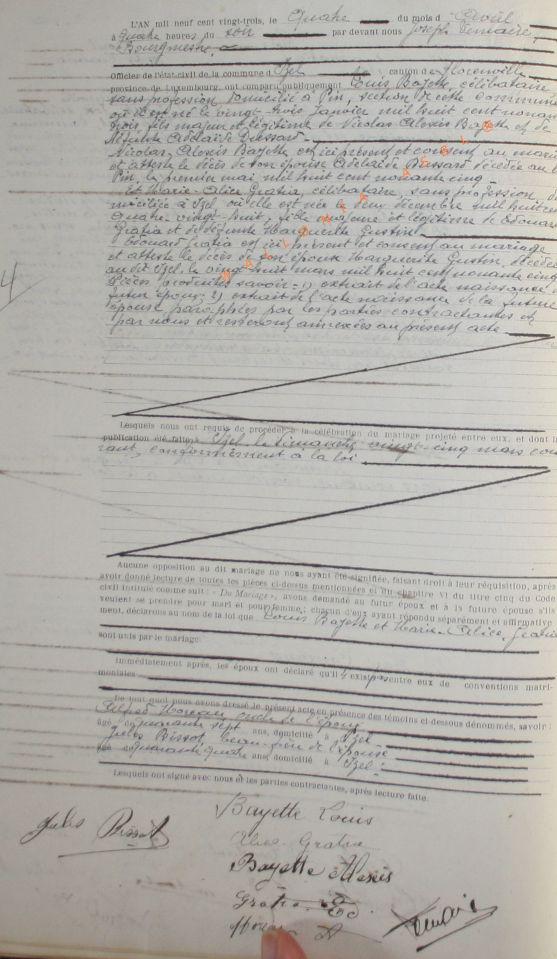 L'AN mil neuf cent vingt-trois, le Quatre du mois d'Avril
à Quatre heures du soir par devant nous Joseph Lemaire,
Bourgmestre,
Officier de l'état-civil de la commune d'Izel canton de Florenville
province de Luxembourg, ont comparu publiquement Louis Bayette, célibataire,
sans profession domicilié à Pin, section de cette commune
où il est né le vingt trois Janvier mil huit cent nonante
trois fils majeur et légitime de Nicolas Alexis Bayette et de
Adelaïde Bossart
Nicolas Alexis Bayette est ici présent et consent au mariage
et atteste le décès de son épouse Adelaïde Bossart décédée au
Pin, le premier mai mil huit cent nonante cinq.
Et Marie Alice Gratia, célibataire, sans profession, do
miciliée à Izel, où elle est née le deux décembre mil huit cent
quatre vingt huit, fille majeure et légitime de Edouard
Gratia et de défunte Marguerite Gustin
Edouard Gratia est ici présent et consent au mariage
et atteste le décès de son épouse Marguerite Gustin, décédée
au dit Izel, le vingt huit mars mil huit cent nonante cinq
Pièces produites savoir: 1) extrait de l'acte naissance
futur époux; 2) extrait de l'acte naissance de la future
épouse paraphées par les parties contractantes et
par nous et resteront annexées au présent acte
4
Lesquels nous ont requis de procéder à la célébration du mariage projeté entre eux, et dont la
publication été faite à Izel le dimanche vingt cinq mars cou
rant, conformément à la loi
Aucune opposition au dit mariage ne nous ayant été signifiée, faisant droit à leur réquisition, après
avoir donné lecture de toutes les pièces ci-dessus mentionnées et du chapitre VI du titre cinq du Code
civil intitulé comme suit : « Du Mariage », avons demandé au futur époux et à la future épouse s'ils
veulent se prendre pour mari et pour femme ; chacun d'eux ayant répondu séparément et affirmative
ment, déclarons au nom de la loi que Louis Bayette et Marie Alice Gratia
sont unis par le mariage.
Immédiatement après, les époux ont déclaré qu'il existe pas entre eux de conventions matri-
moniales
De tout quoi nous avons dressé le présent acte en présence des témoins ci-dessous dénommés, savoir :
Alfred Moreau oncle de l'époux
âgé de quarante sept ans, domicilié à Izel
Jules Bissot, beau-frère de l'épouse
âgé de quarante quatre ans, domicilié à Izel
Lesquels ont signé avec nous et les parties contractantes, après lecture faite.
Jules Bissot
Bayette Louis
Alice Gratia
Bayette Alexis
Gratia Ed
Moreau A
Lemaire